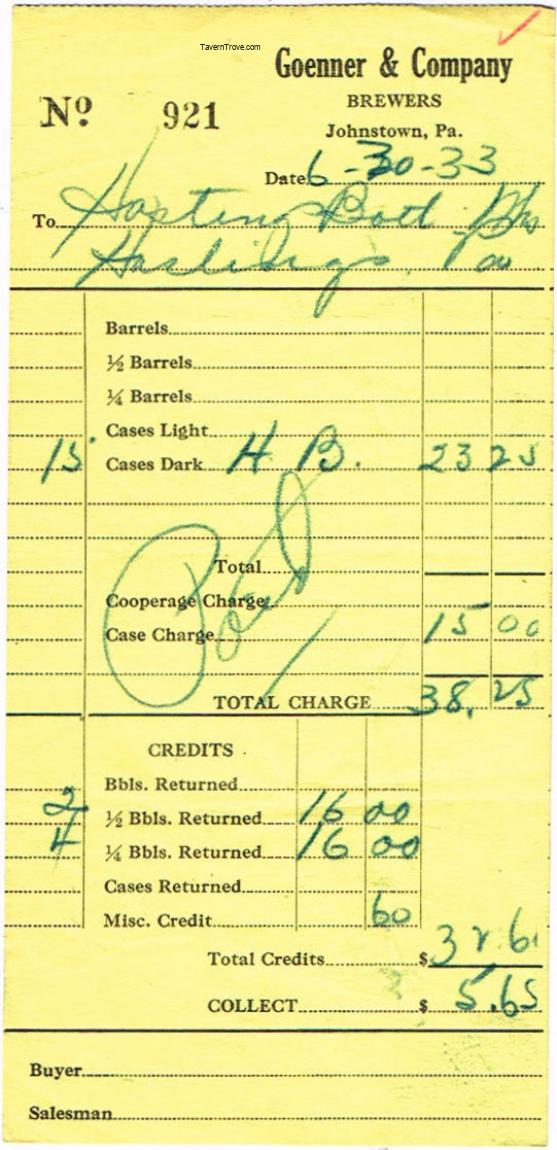 TavernTrove.com
Goenner & Company
BREWERS
Johnstown, Pa.
Nº 921
Date 6-30-33
To Hasting Botl.
Hastings, Pa
Barrels
½ Barrels
¼ Barrels
Cases Light
15 Cases Dark H B. 23 25
Total
Cooperage Charge
Case Charge 15 00
TOTAL CHARGE 38.25
CREDITS
Bbls. Returned
2 ½ Bbls. Returned 16 00
4 ¼ Bbls. Returned 16 00
Cases Returned
Misc. Credit 60
Total Credits $ 32.6
COLLECT $ 5.65
Buyer
Salesman